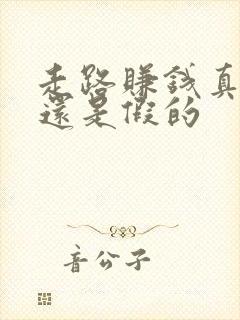 走路賺錢真
還是假的
音公子